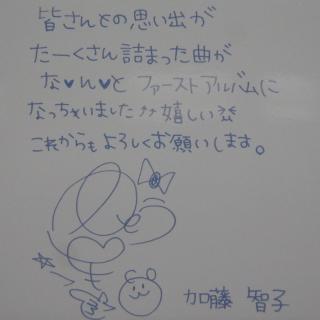 皆さんとの思い出が
たーくさん詰まった曲が
な♥ん♥と ファーストアルバムに
なっちゃいました⤴⤴嬉しい
これからもよろしくお願いします。
加藤 智子